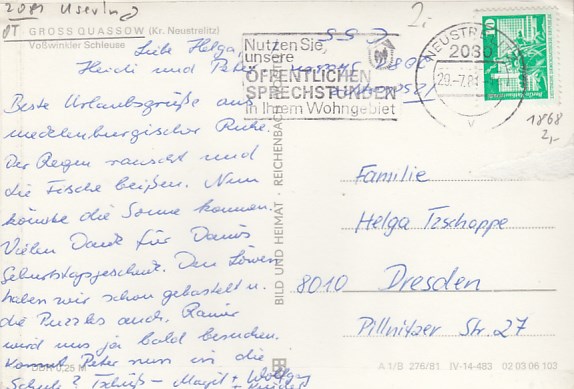 2081 Userin
OT GROSS QUASSOW (Kr. Neustrelitz)
Voßwinkler Schleuse
Liebe Helga,
Heidi und
Beste Urlaubsgrüße aus
mecklenburgischer Ruhe.
Der Regen rauscht und
die Fische beißen. Nun
könnte die Sonne kommen.
Vielen Dank für
Geburtstagsgeschenk. Den Löwen
haben wir schon gebastelt u.
die Puzzles auch. Rainer
wird uns ja bald besuchen.
Kommt Peter nun in die
Schule? Tschüß - Margit + Wolfgang
+ Kinder
EVP 0,25 M
BILD UND HEIMAT · REICHENBACH
Nutzen Sie
unsere
ÖFFENTLICHEN
SPRECHSTUNDEN
in Ihrem Wohngebiet
NEUSTRELITZ
2080
29.-7.81
v
10
2,-
1868
2,-
Familie
Helga Tzschoppe
8010 Dresden
Pillnitzer Str. 27
A 1/B 276/81 IV-14-483 02 03 06 103